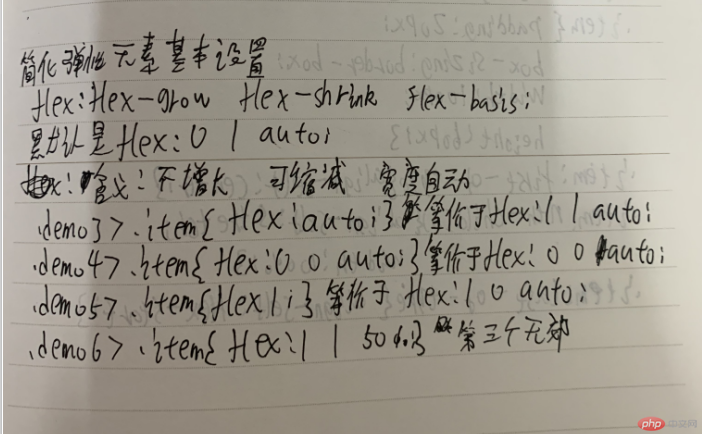 简化弹性元素基本设置
flex:flex-grow flex-shrink flex-basis;
默认是flex:0 1 auto;
含义:不增大 可缩减 宽度自动
.demo3>.item{flex:auto;}等价于flex:1 1 auto;
.demo4>.item{flex:0 0 auto;}等价于flex:0 0 auto;
.demo5>.item{flex1;}等价于flex:1 0 auto;
.demo6>.item{flex:1 1 50%;} 第三个无效
php中文网